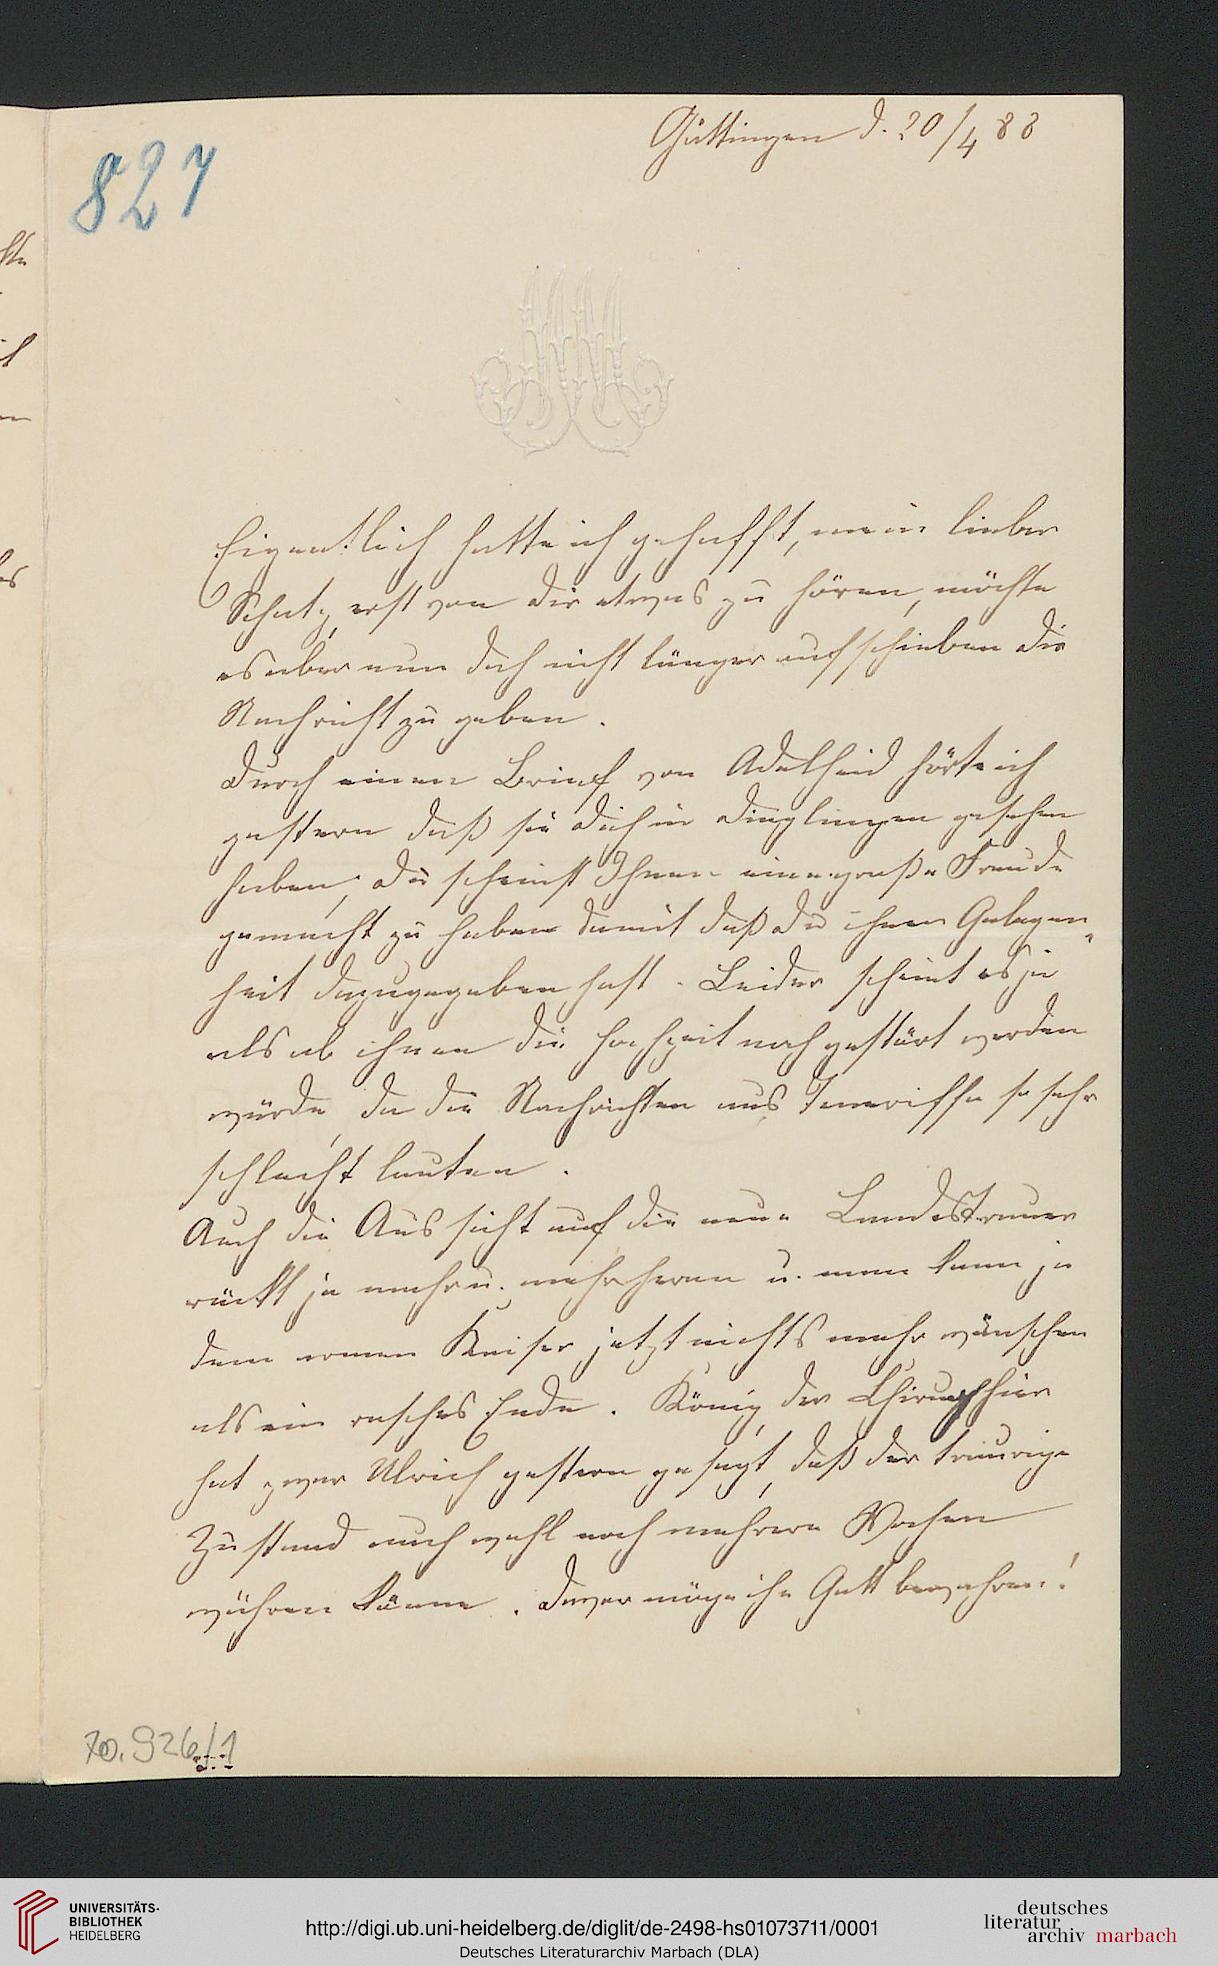 Göttingen d. 20/4 88
827
Eigentlich hatte ich gehofft, mein lieber
Schatz, erst von Dir etwas zu hören, möchte
es aber nun doch nicht länger aufschieben Dir
Nachricht zu geben.
Durch einen Brief von Adelheid hörte ich
gestern daß sie Dich in Dinglingen gesehen
haben, Du scheinst Ihnen eine große Freude
gemacht zu haben damit daß Du ihnen Gelegen„
heit dazu gegeben hast. Leider scheint es ja
als ob ihnen die Hochzeit noch gestört werden
würde, da die Nachrichten aus Teneriffa so sehr
schlecht lauten.
Auch die Aussicht auf die neue Landestrauer
rückt ja mehr u. mehr heran u. man kann ja
dem armen Kaiser jetzt nichts mehr wünschen
als ein rasches Ende. König, der Chirurg hier
hat zwar Ulrich gestern gesagt, daß der traurige
Zustand auch wohl noch mehrere Wochen
währen könne. Davor möge ihn Gott bewahren!
70.926/1
UNIVERSITÄTS-
BIBLIOTHEK
HEIDELBERG
http://digi.ub.uni-heidelberg.de/diglit/de-2498-hs01073711/0001
Deutsches Literaturarchiv Marbach (DLA)
deutsches
literatur
archiv marbach